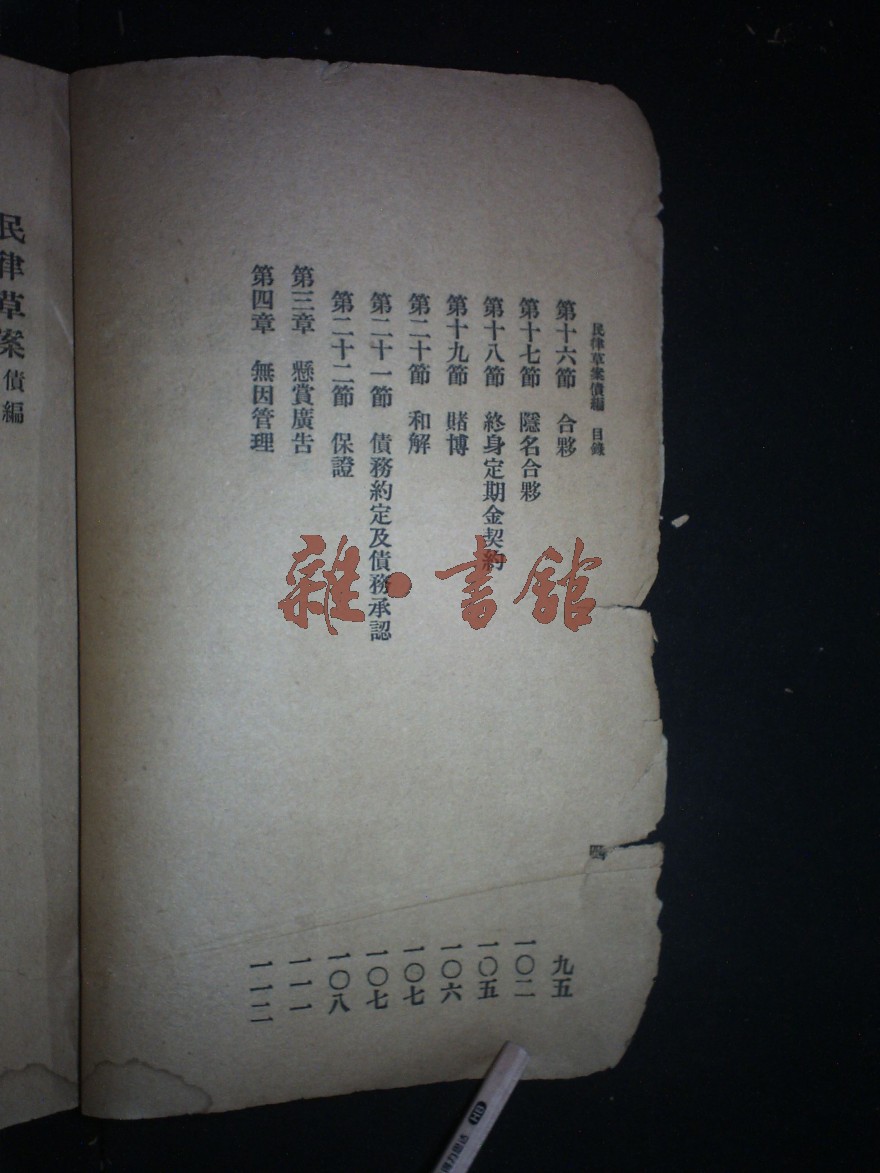 民律草案債編 目錄
第十六節 合夥 九五
第十七節 隱名合夥 一〇二
第十八節 終身定期金契約 一〇五
第十九節 賭博 一〇六
第二十節 和解 一〇七
第二十一節 債務約定及債務承認 一〇七
第二十二節 保證 一〇八
第三章 懸賞廣告 一一一
第四章 無因管理 一一二
四
民律草案 債編
雜·書館
HB